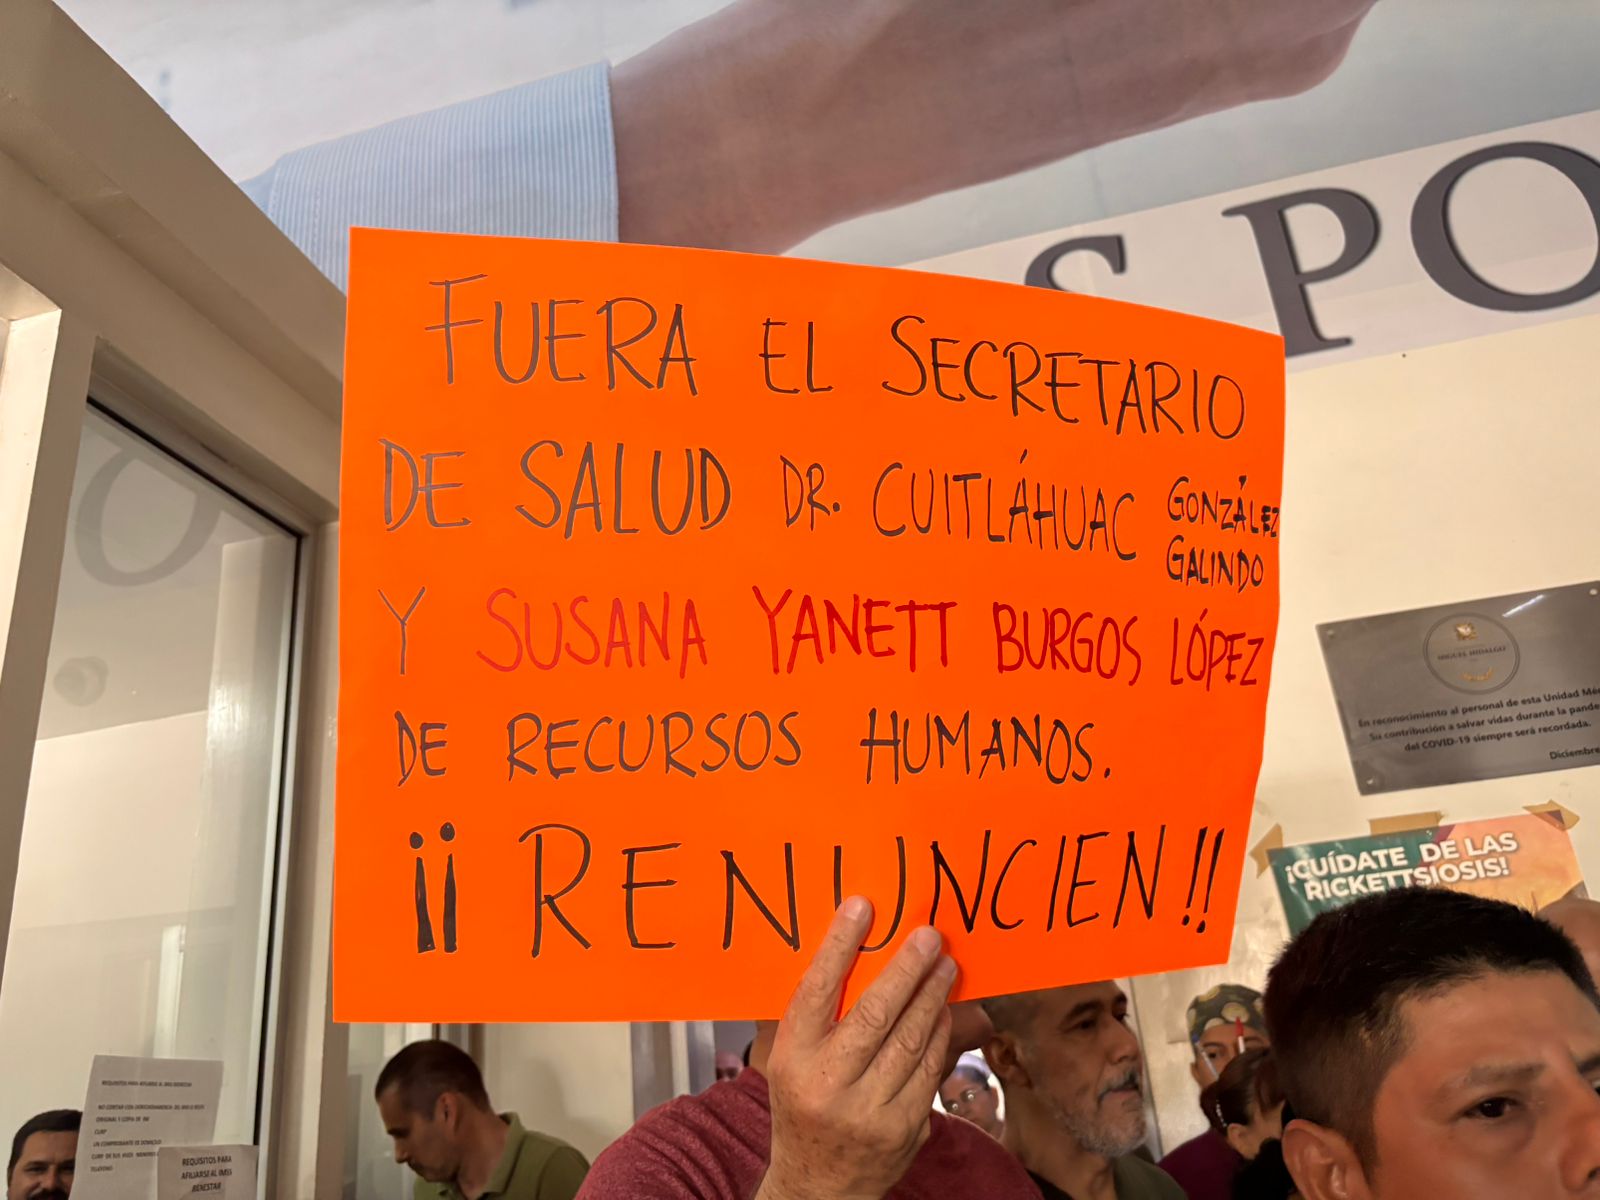 S PO
FUERA EL SECRETARIO
DE SALUD DR. CUITLÁHUAC GONZÁLEZ
GALINDO
Y SUSANA YANETT BURGOS LÓPEZ
DE RECURSOS HUMANOS.
¡¡RENUNCIEN!!
MIGUEL HIDALGO
En reconocimiento al personal de esta Unidad
Su contribución a salvar vidas durante la
del COVID-19 siempre será recordada.
Diciembre
¡CUÍDATE DE LAS
RICKETTSIOSIS!
REQUISITOS PARA AFILIARSE AL IMSS BIENESTAR
ORIGINAL Y COPIA DE INE
CURP
UN COMPROBANTE DE DOMICILIO
TELEFONO
REQUISITOS PARA
AFILIARSE AL IMSS
BIENESTAR